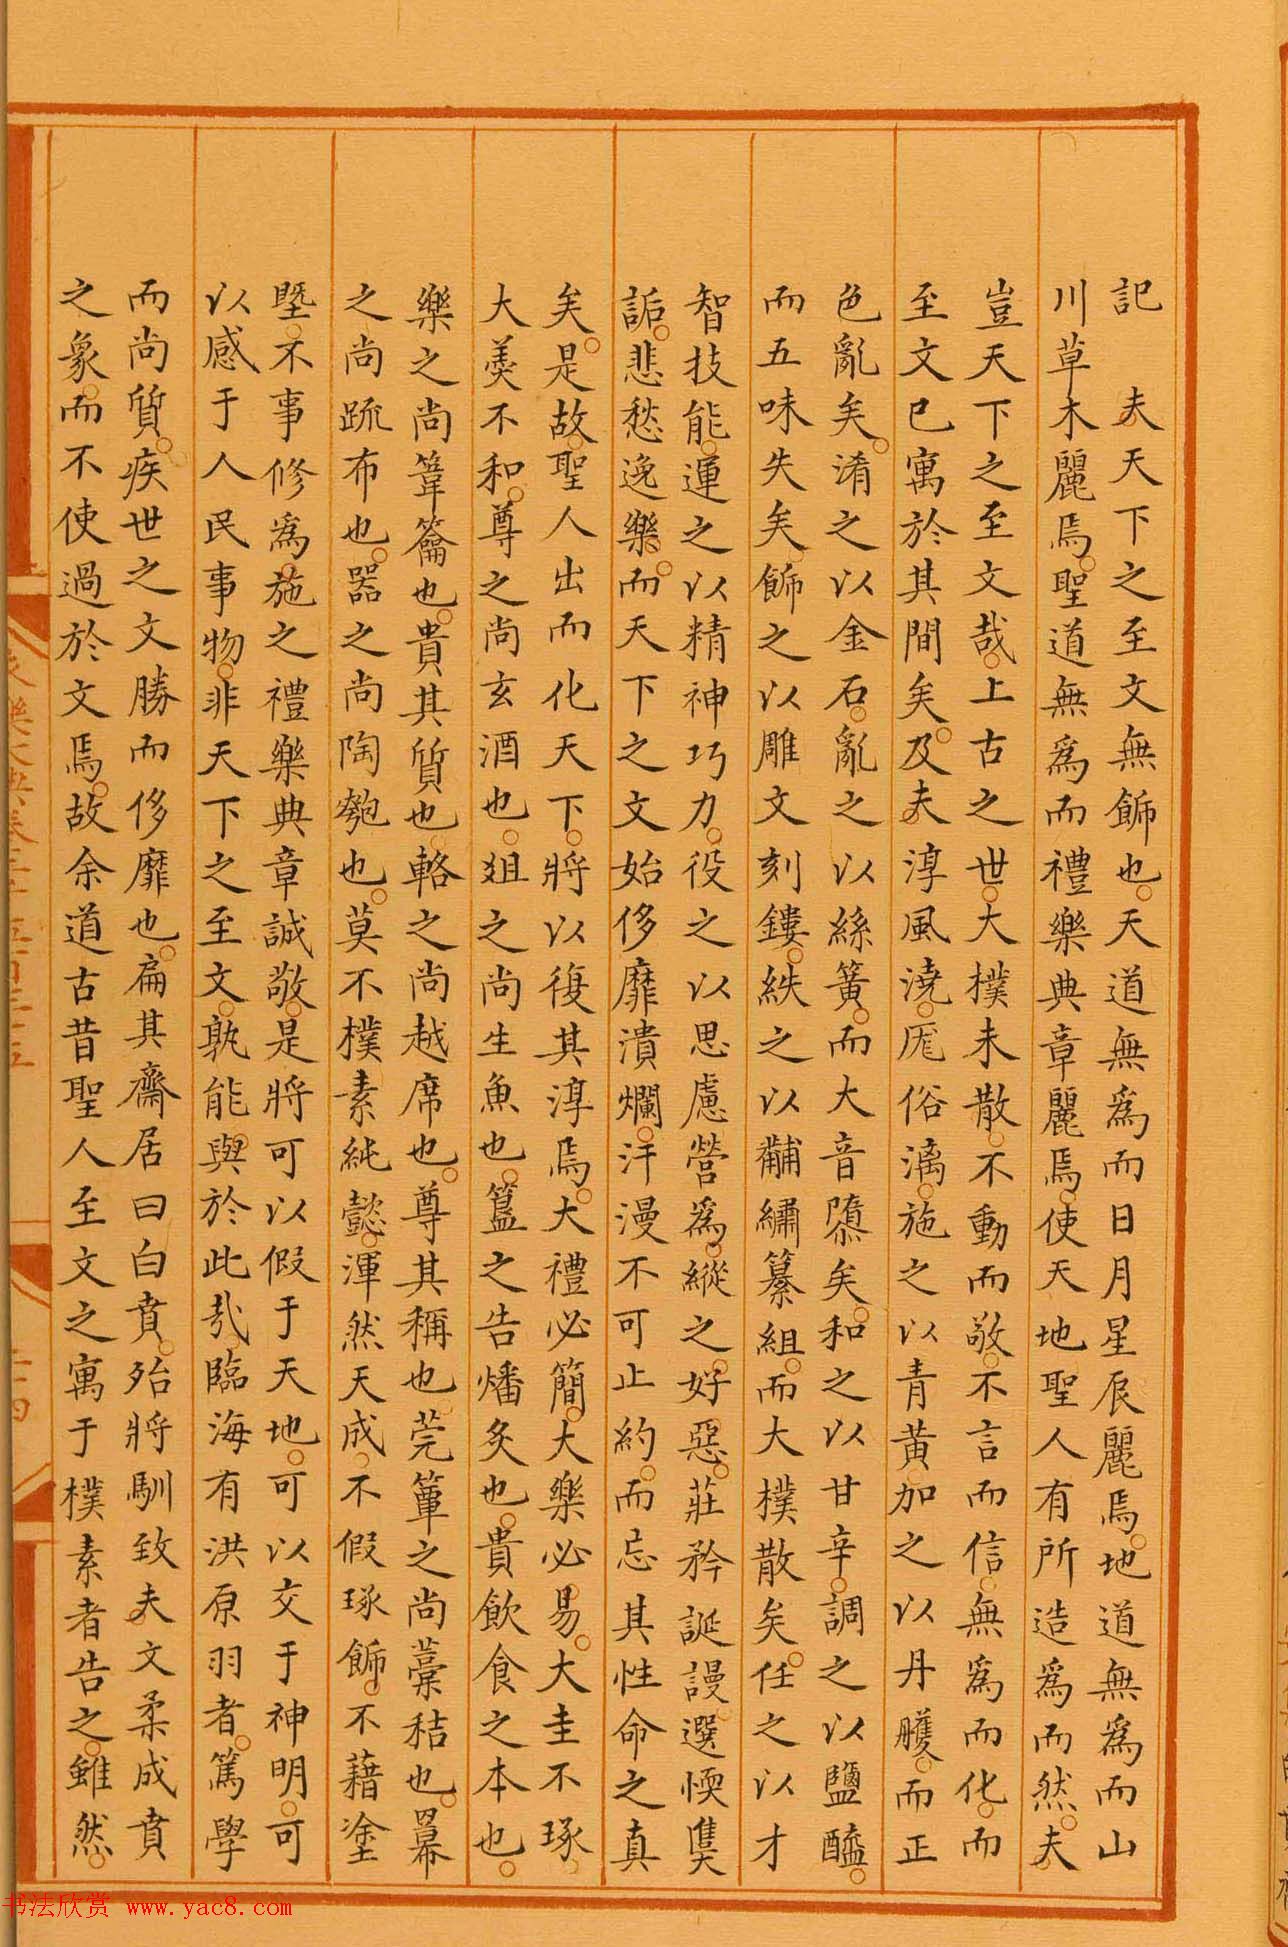 記　夫天下之至文無飾也天道無爲而日月星辰麗焉地道無爲而山
川草木麗焉聖道無爲而禮樂典章麗焉使天地聖人有所造爲而然夫
豈天下之至文哉上古之世大樸未散不動而敬不言而信無爲而化而
至文已寓於其間矣及夫淳風澆厖俗漓施之以青黃加之以丹雘而正
色亂矣淆之以金石亂之以絲簧而大音隳矣和之以甘辛調之以鹽醯
而五味失矣飾之以雕文刻鏤紩之以黼繡纂組而大樸散矣任之以才
智技能運之以精神巧力役之以思慮營爲縱之好惡莊矜誕謾選愞䜁
詬悲愁逸樂而天下之文始侈靡潰爛汗漫不可止約而忘其性命之真
矣是故聖人出而化天下將以復其淳焉大禮必簡大樂必易大圭不琢
大羹不和尊之尚玄酒也俎之尚生魚也簋之告燔炙也貴飲食之本也
樂之尚葦籥也貴其質也輅之尚越席也尊其稱也莞簟之尚藁秸也冪
之尚疏布也器之尚陶匏也莫不樸素純懿渾然天成不假琢飾不藉塗
塈不事修爲施之禮樂典章誠敬是將可以假于天地可以交于神明可
以感于人民事物非天下之至文孰能與於此哉臨海有洪原羽者篤學
而尚質疾世之文勝而侈靡也扁其齋居曰白賁殆將馴致夫文柔成賁
之象而不使過於文焉故余道古昔聖人至文之寓于樸素者告之雖然
书法欣赏 www.yac8.com